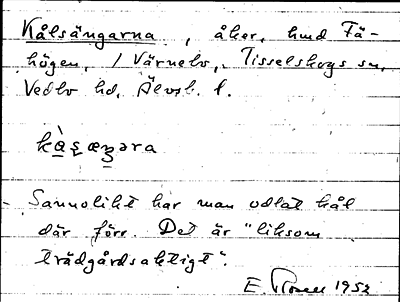 Kålsängarna, åker, hmd Fä-
högen, / Värnebo, Tisselskogs sn,
Vedbo hd, Älvsb. l.
kå̀ṣæŋəra
Sannolikt har man odlat kål
där förr. Det är "liksom
trädgårdsaktigt".
E. 1952